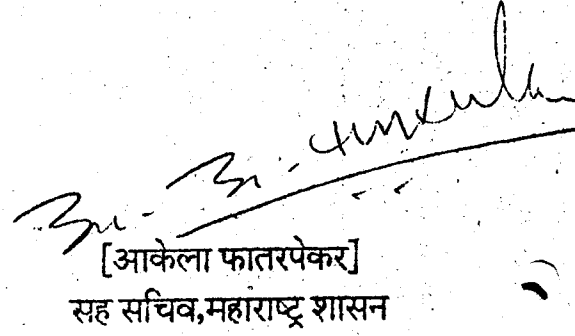 [आकेला फातरपेकर]
सह सचिव,महाराष्ट्र शासन